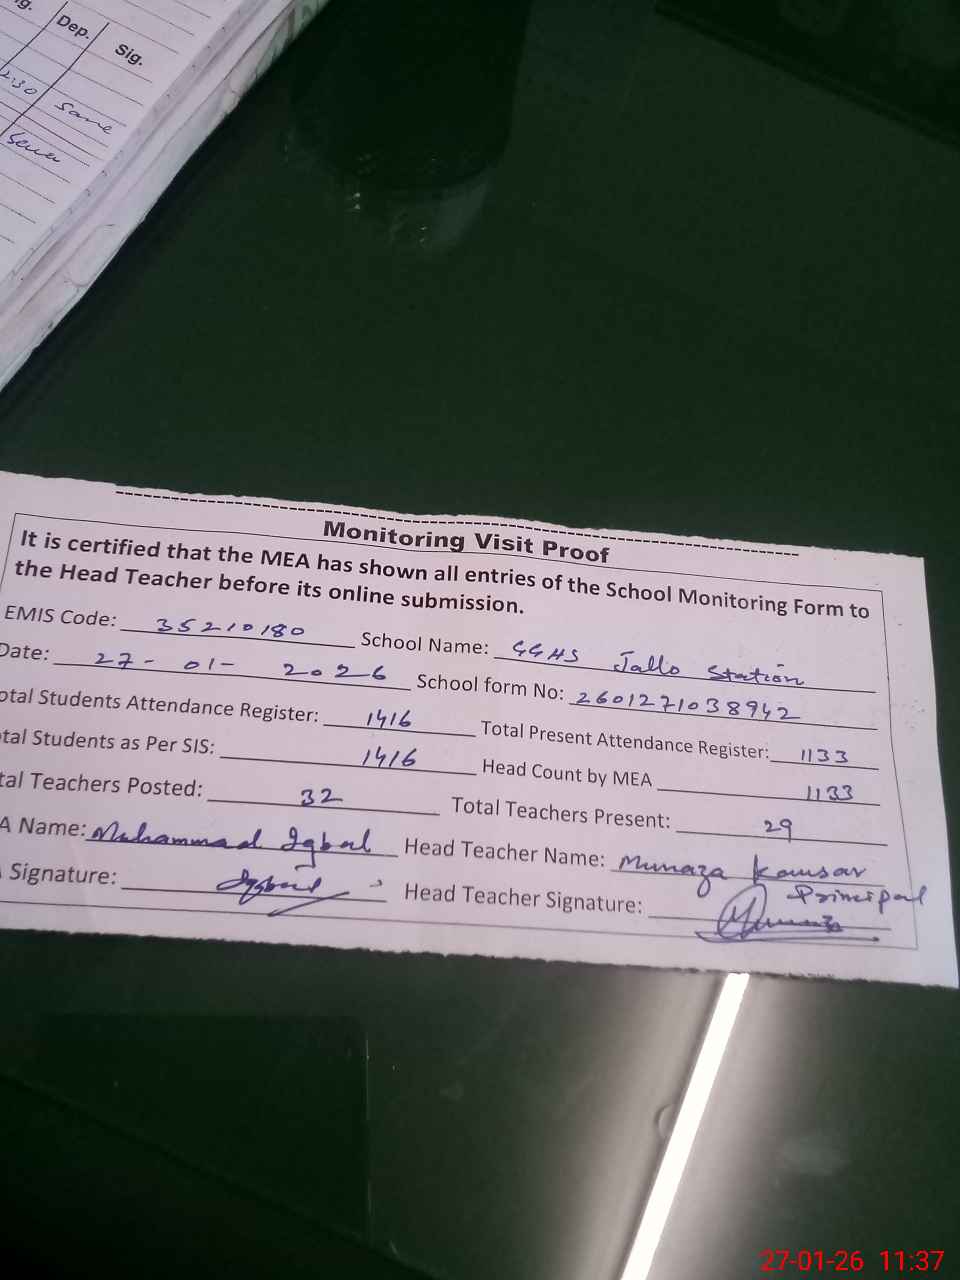 g. Dep. Sig.
2:30 same
Monitoring Visit Proof
It is certified that the MEA has shown all entries of the School Monitoring Form to
the Head Teacher before its online submission.
EMIS Code: 35210180 School Name: GGHS Jallo Station
Date: 27-01-2026 School form No: 2601271038942
otal Students Attendance Register: 1416 Total Present Attendance Register: 1133
tal Students as Per SIS: 1416 Head Count by MEA 1133
tal Teachers Posted: 32 Total Teachers Present: 29
A Name: Muhammad Iqbal Head Teacher Name: Munaza Kausar
Principal
Signature: Iqbal Head Teacher Signature:
27-01-26 11:37